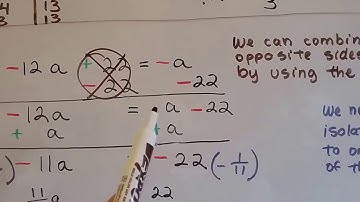 4 | 13
3 | 13
3
-12a + 22 = -a
- 22 - 22
We can combin
opposite sides
by using the
-12a = - a - 22
+ a + a
We ne
isola
to on
of th
) -11a -22(-1/11)
11a 22
EXPO